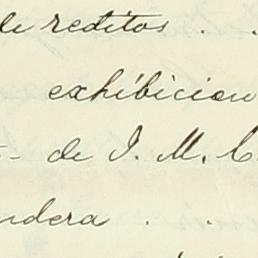 de reditos . .
exhibicion
- de J. M. C
ndera . .